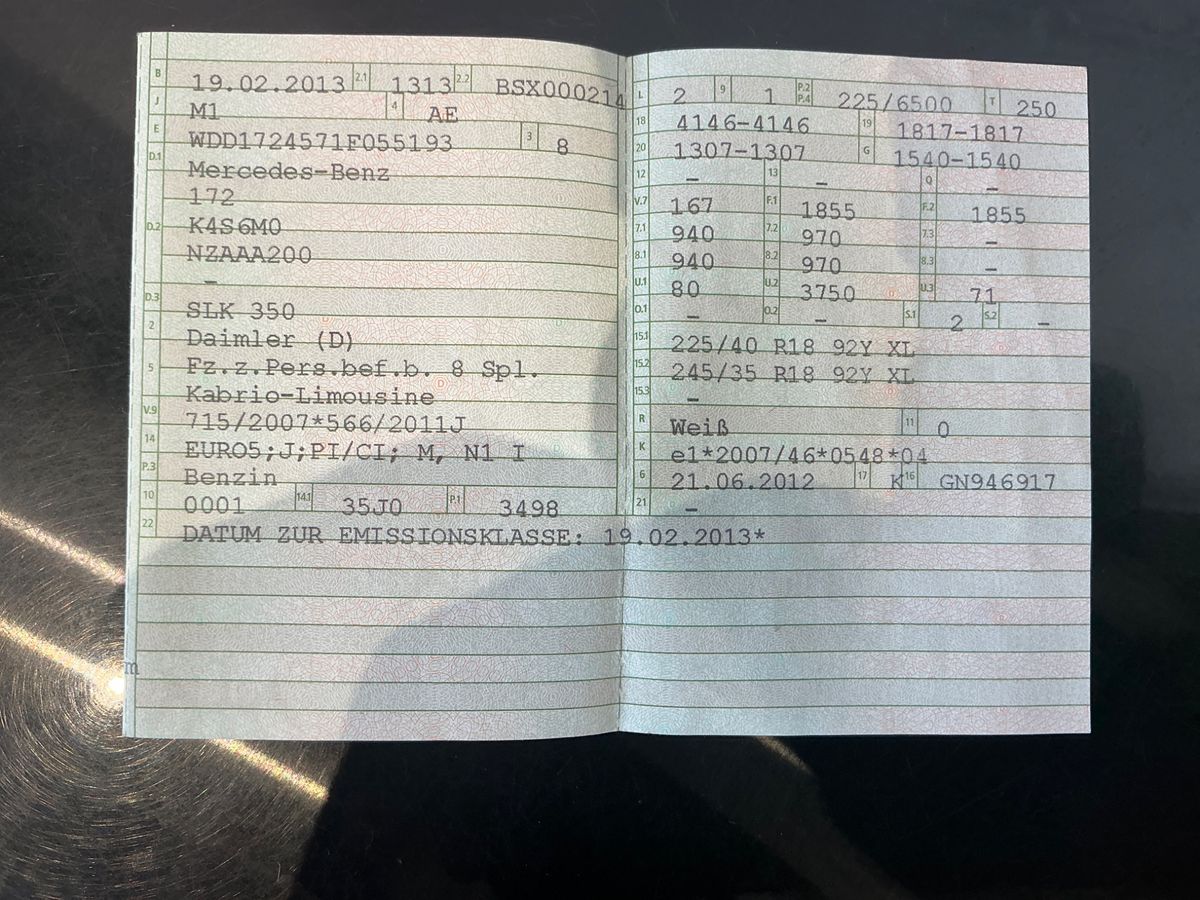 B 19.02.2013 2.1 1313 2.2 BSX000214
J M1 4 AE
E WDD1724571F055193 3 8
D.1 Mercedes-Benz
172
D.2 K4S6M0
NZAAA200
–
D.3 SLK 350
2 Daimler (D)
5 Fz.z.Pers.bef.b. 8 Spl.
Kabrio-Limousine
V.9 715/2007*566/2011J
14 EURO5;J;PI/CI; M, N1 I
P.3 Benzin
10 0001 14.1 35J0 P.1 3498
22 DATUM ZUR EMISSIONSKLASSE: 19.02.2013*
m
L 2 9 1 P.2 P.4 225/6500 T 250
18 4146-4146 19 1817-1817
20 1307-1307 G 1540-1540
12 – 13 – Q –
V.7 167 F.1 1855 F.2 1855
7.1 940 7.2 970 7.3 –
8.1 940 8.2 970 8.3 –
U.1 80 U.2 3750 U.3 71
O.1 – O.2 – S.1 2 S.2 –
15.1 225/40 R18 92Y XL
15.2 245/35 R18 92Y XL
15.3 –
R Weiß 11 0
K e1*2007/46*0548*04
6 21.06.2012 17 K 16 GN946917
21 –